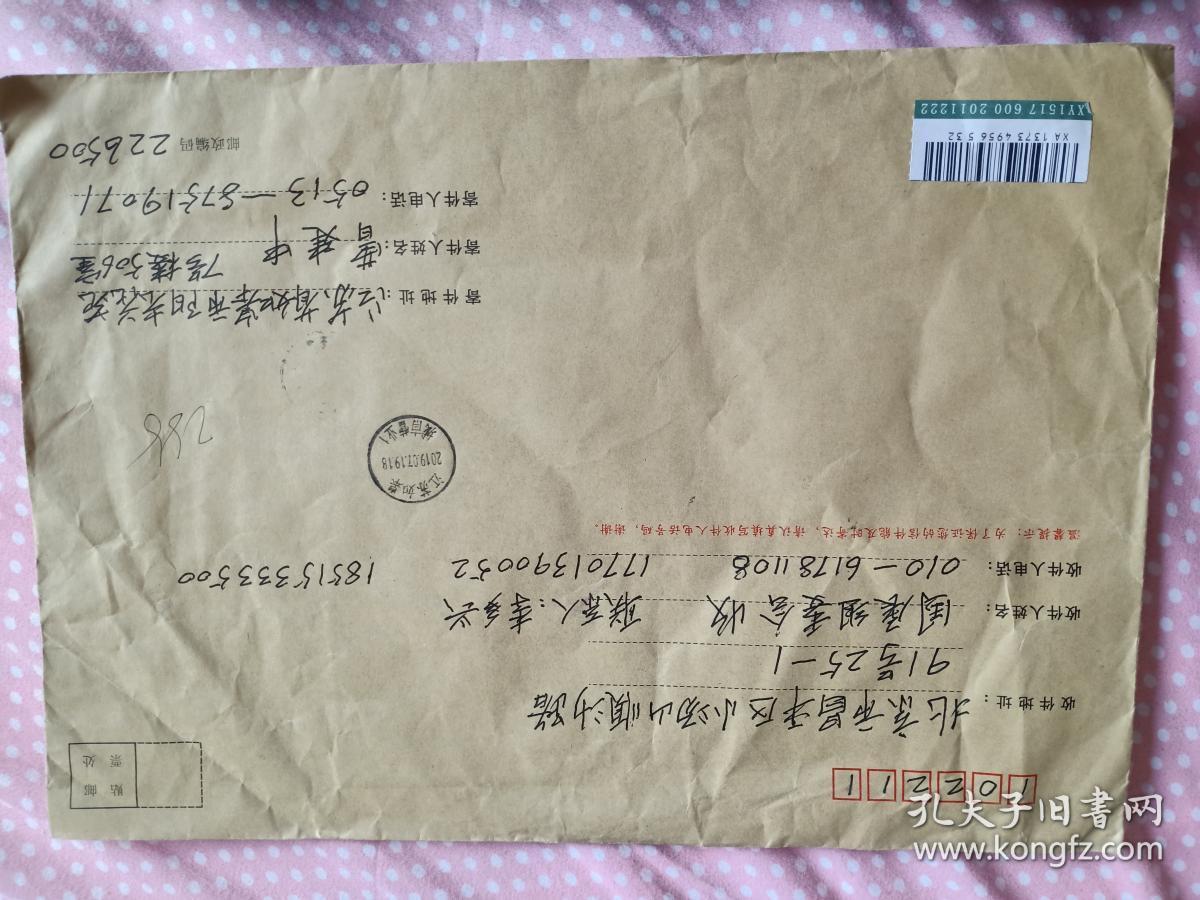 102211
贴邮
票处
收件地址：北京市昌平区小汤山顺沙路
91号25-1
收件人姓名：国展组委会收 联系人：李多兴
收件人电话：010-61781108 17701390052 18515333500
温馨提示：为了保证您的信件能及时寄达，请认真填写收件人电话号码，谢谢。
江苏如皋
2019.07.19.18
城信营业1
寄件地址：江苏省如皋市阳光花苑
楼306室
寄件人姓名：曹建中
寄件人电话：0513-87519071
邮政编码 226500
XA 1373 4956 5 32
XY1517 600 2011222
孔夫子旧书网
www.kongfz.com